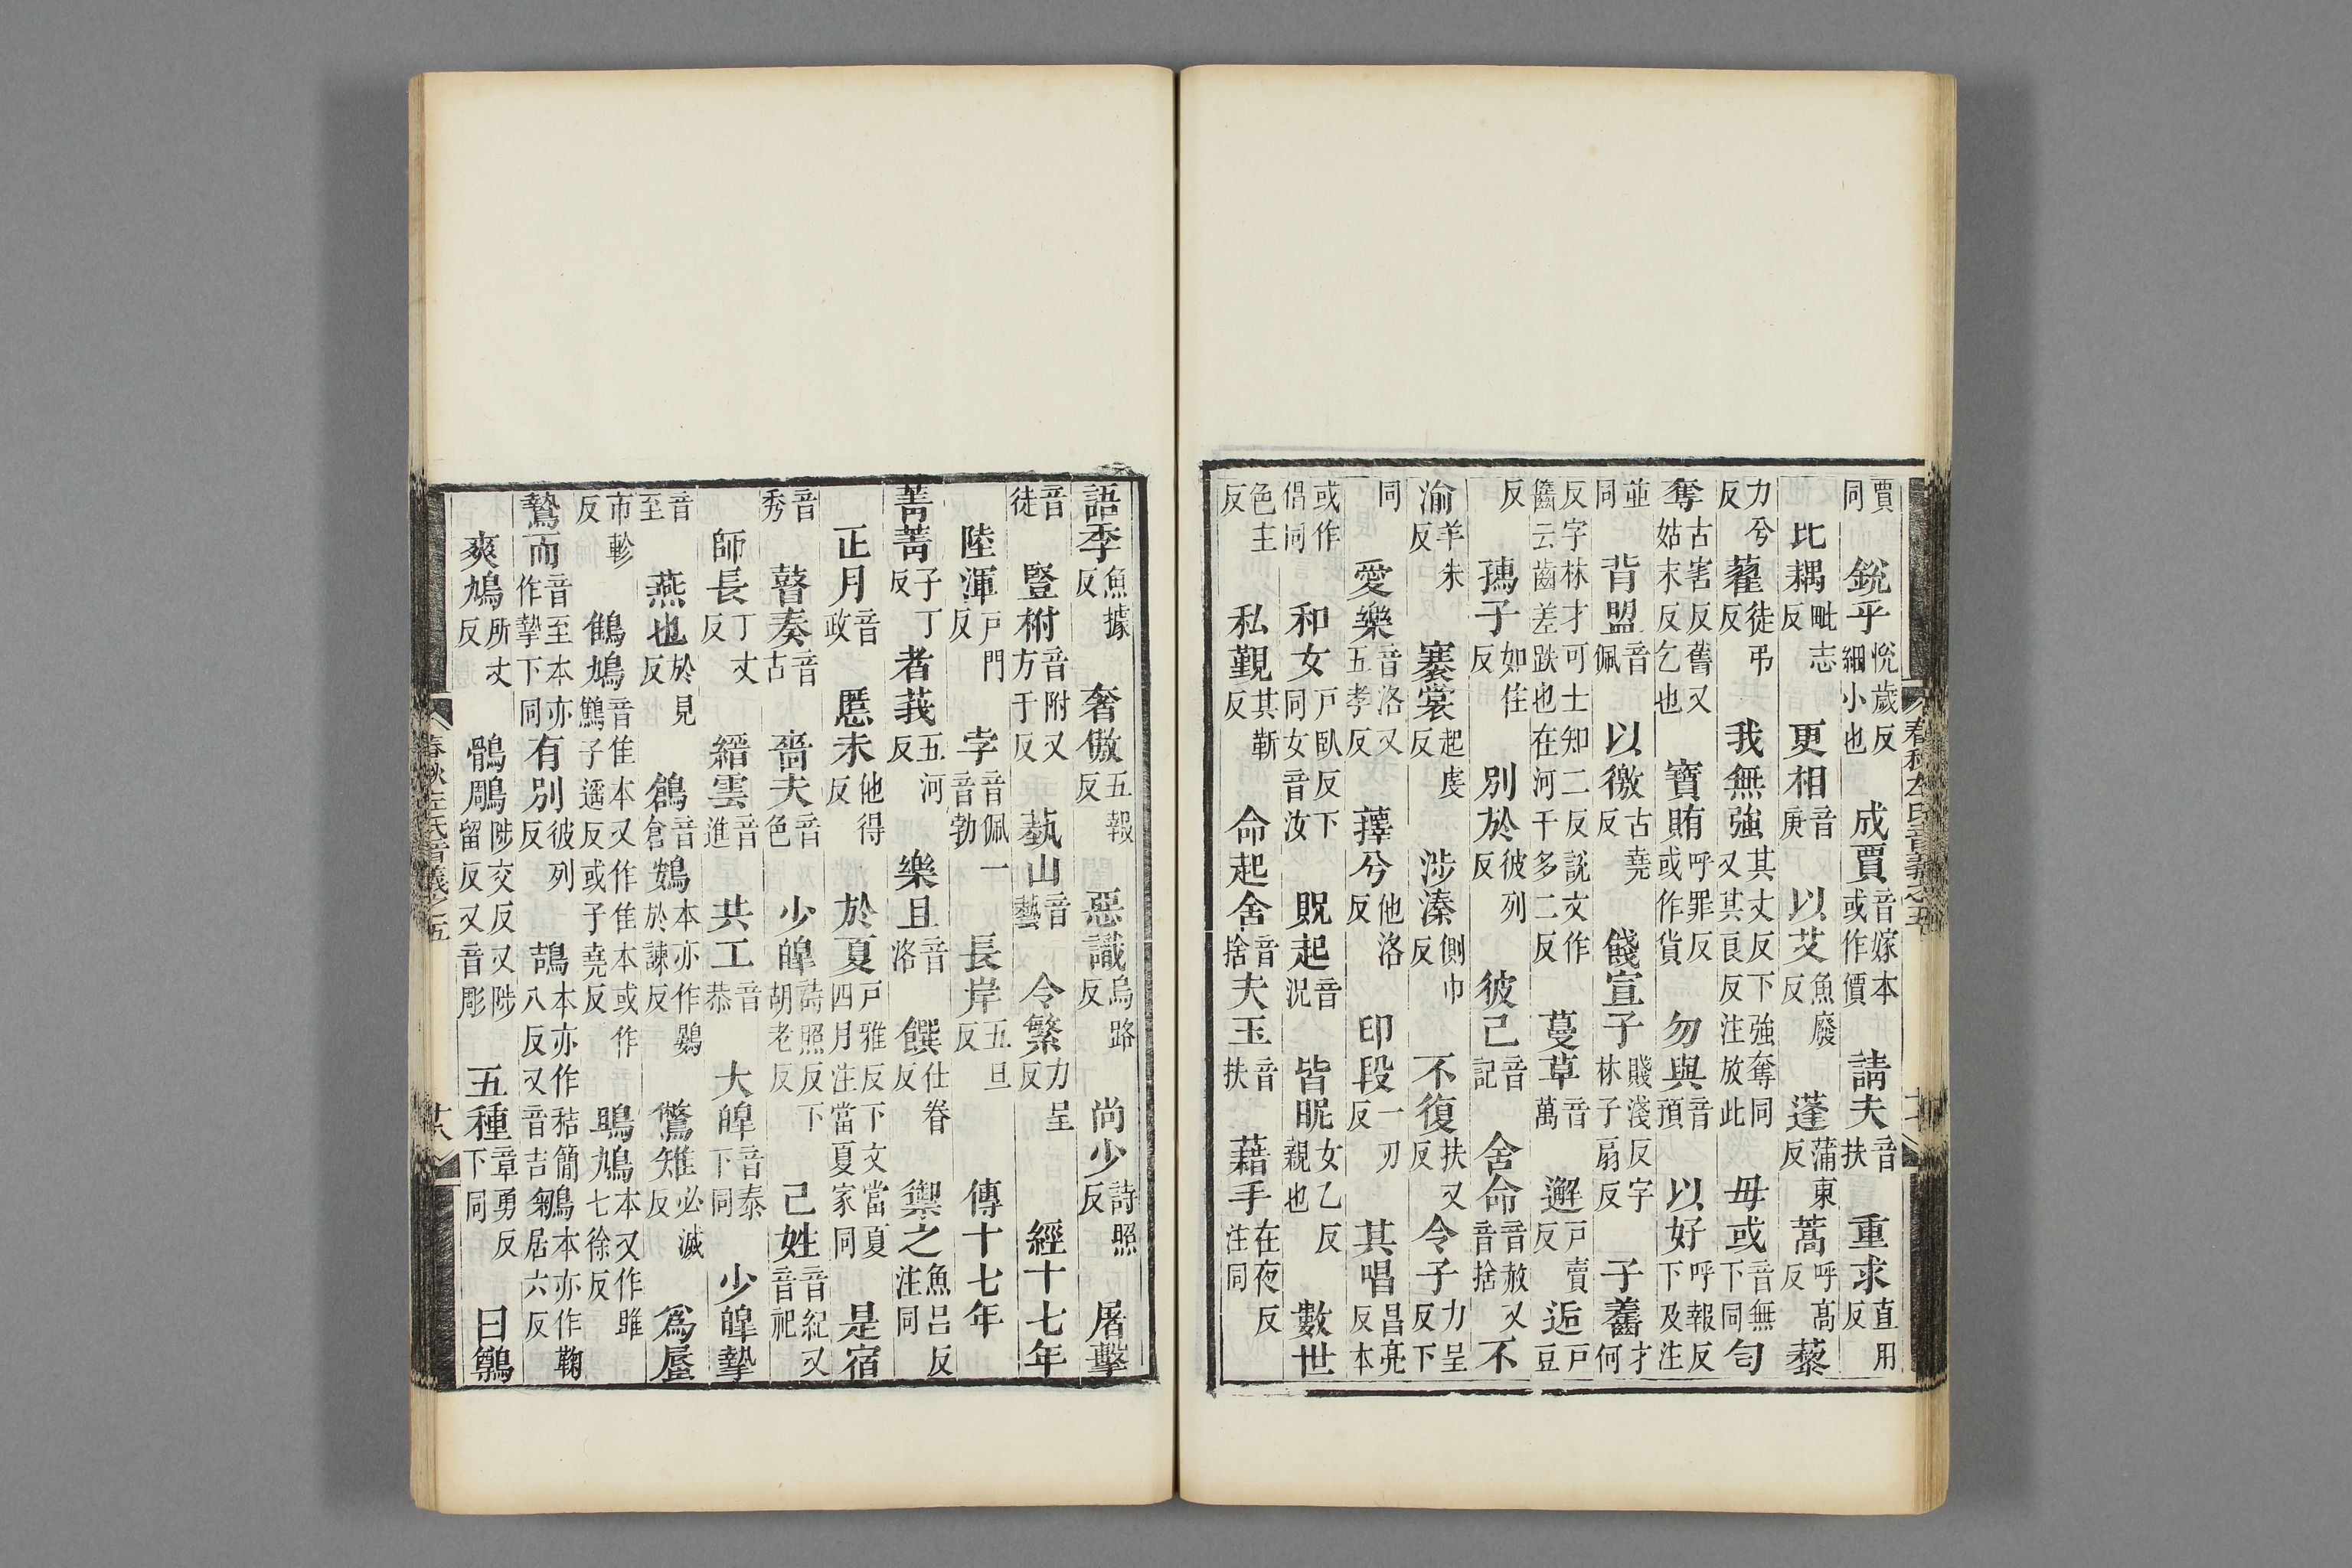 賈同 銳乎悅歲反細小也 成賈音嫁本或作價 請夫音扶 重求直用反
比耦毗志反 更相音庚 以艾魚廢反 蓬蒲東反 蒿呼高反 藜
力兮反 藋徒弔反 我無強其丈反下強奪同又其良反注放此 毋或音無下同 匄
奪古害反舊又姑末反乞也 寶賄呼罪反或作貨 勿與音預 以好呼報反下及注
並同 背盟音佩 以徼古堯反 餞宣子賤淺反字林子扇反 子齹才何
反字林才可士知二反說文作齹云齒差跌也在河干多二反 蔓草音萬 邂戶賣反 逅戶豆
反 孺子如住反 別於彼列反 彼己音記 舍命音赦又音捨 不
渝羊朱反 褰裳起虔反 涉溱側巾反 不復扶又反 令子力呈反下
同 愛樂音洛又五孝反 蘀兮他洛反 印段一刃反 其唱昌亮反本
或作倡同 和女戶臥反下同女音汝 貺起音況 皆昵女乙反親也 數世
色主反 私覲其靳反 命起舍音捨 夫玉音扶 藉手在夜反注同
春秋左氏音義之五
語季魚據反 奢傲五報反 惡識烏路反 尚少詩照反 屠擊
音徒 豎柎音附又方于反 蓺山音藝 令繁力呈反 經十七年
陸渾戶門反 孛音佩一音勃 長岸五旦反 傳十七年
菁菁子丁反 者莪五河反 樂且音洛 饌仕眷反 禦之魚呂反注同
正月音政 慝未他得反 於夏戶雅反下文當夏四月注當夏家同 是宿
音秀 瞽奏音古 嗇夫音色 少皞詩照反下胡老反 己姓音紀又音祀
師長丁丈反 縉雲音進 共工音恭 大皞音泰下同 少皞摯
音至 燕也於見反 鶬音倉 鴳本亦作鷃於諫反 鷩雉必滅反 爲蜃
市軫反 鵻鳩音隹本又作隹本或作鷦子遥反或子堯反 鴡鳩本又作雎七徐反
鷙而音至本亦作摯下同 有別彼列反 鴶本亦作秸簡八反又音吉 鵴本亦作鞠居六反
爽鳩所丈反 鶻鵰陟交反又陟留反又音彫 五種章勇反下同 曰鶉
春秋左氏音義之五